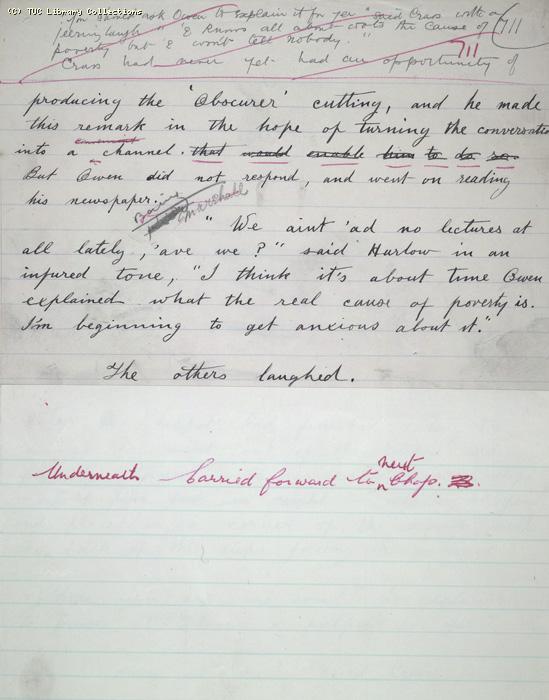 (C) TUC Library Collections
I'm Owen to explain it for yer" said Crass with a
jeering laugh " E knows all about wot's the cause of 711
poverty but 'E won't tell nobody." 711
Crass had never yet had an opportunity of
producing the 'Obscurer' cutting, and he made
this remark in the hope of turning the conversatio
into a channel. that would enable him to do so
But Owen did not respond, and went on reading
his newspaper.
Marshall
" We aint 'ad no lectures at
all lately, 'ave we?" said Harlow in an
injured tone, "I think it's about time Owen
explained what the real cause of poverty is.
I'm beginning to get anxious about it."
The others laughed.
Underneath Carried forward to next Chap.